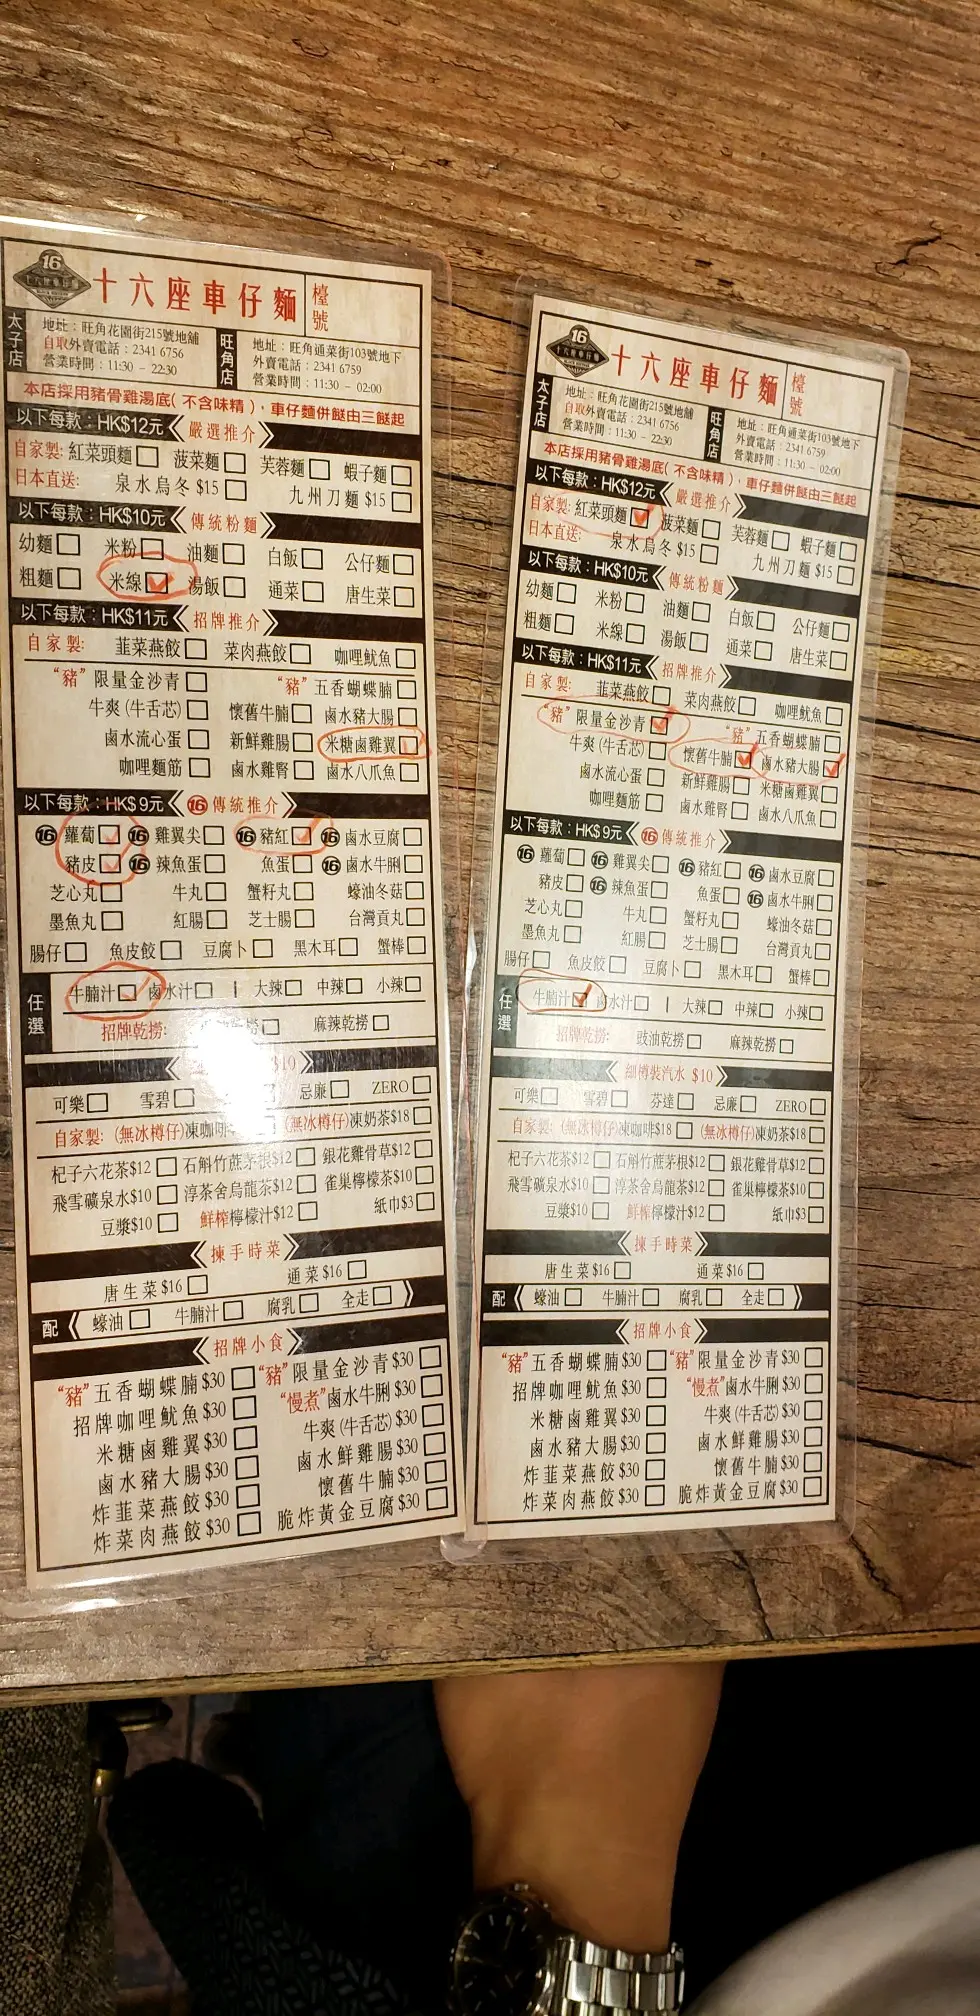 16
十六座車仔麵
檯號
太子店
地址：旺角花園街215號地舖
自取外賣電話：2341 6756
營業時間：11:30 – 22:30
旺角店
地址：旺角通菜街103號地下
外賣電話：2341 6759
營業時間：11:30 – 02:00
本店採用豬骨雞湯底(不含味精)，車仔麵併餸由三餸起
以下每款：HK$12元 嚴選推介
自家製: 紅菜頭麵 菠菜麵 芙蓉麵 蝦子麵
日本直送: 泉水烏冬 $15 九州刀麵 $15
以下每款：HK$10元 傳統粉麵
幼麵 米粉 油麵 白飯 公仔麵
粗麵 米線 湯飯 通菜 唐生菜
以下每款：HK$11元 招牌推介
自家製: 韮菜燕餃 菜肉燕餃 咖哩魷魚
“豬”限量金沙青 “豬”五香蝴蝶腩
牛爽(牛舌芯) 懷舊牛腩 鹵水豬大腸
鹵水流心蛋 新鮮雞腸 米糖鹵雞翼
咖哩麵筋 鹵水雞腎 鹵水八爪魚
以下每款：HK$9元 16 傳統推介
16 蘿蔔 16 雞翼尖 16 豬紅 16 鹵水豆腐
豬皮 16 辣魚蛋 魚蛋 16 鹵水牛脷
芝心丸 牛丸 蟹籽丸 蠔油冬菇
墨魚丸 紅腸 芝士腸 台灣貢丸
腸仔 魚皮餃 豆腐卜 黑木耳 蟹棒
任選
牛腩汁 鹵水汁 | 大辣 中辣 小辣
招牌乾撈: 乾撈 麻辣乾撈
$10
可樂 雪碧 忌廉 ZERO
自家製: (無冰樽仔)凍咖啡 (無冰樽仔)凍奶茶$18
杞子六花茶$12 石斛竹蔗茅根$12 銀花雞骨草$12
飛雪礦泉水$10 淳茶舍烏龍茶$12 雀巢檸檬茶$10
豆漿$10 鮮榨檸檬汁$12 紙巾$3
揀手時菜
唐生菜 $16 通菜 $16
配 蠔油 牛腩汁 腐乳 全走
招牌小食
“豬”五香蝴蝶腩 $30 “豬”限量金沙青 $30
招牌咖哩魷魚 $30 “慢煮”鹵水牛脷 $30
米糖鹵雞翼 $30 牛爽(牛舌芯) $30
鹵水豬大腸 $30 鹵水鮮雞腸 $30
炸韮菜燕餃 $30 懷舊牛腩 $30
炸菜肉燕餃 $30 脆炸黃金豆腐 $30
16
十六座車仔麵
檯號
太子店
地址：旺角花園街215號地舖
自取外賣電話：2341 6756
營業時間：11:30 – 22:30
旺角店
地址：旺角通菜街103號地下
外賣電話：2341 6759
營業時間：11:30 – 02:00
本店採用豬骨雞湯底(不含味精)，車仔麵併餸由三餸起
以下每款：HK$12元 嚴選推介
自家製: 紅菜頭麵 菠菜麵 芙蓉麵 蝦子麵
日本直送: 泉水烏冬 $15 九州刀麵 $15
以下每款：HK$10元 傳統粉麵
幼麵 米粉 油麵 白飯 公仔麵
粗麵 米線 湯飯 通菜 唐生菜
以下每款：HK$11元 招牌推介
自家製: 韮菜燕餃 菜肉燕餃 咖哩魷魚
“豬”限量金沙青 “豬”五香蝴蝶腩
牛爽(牛舌芯) 懷舊牛腩 鹵水豬大腸
鹵水流心蛋 新鮮雞腸 米糖鹵雞翼
咖哩麵筋 鹵水雞腎 鹵水八爪魚
以下每款：HK$9元 16 傳統推介
16 蘿蔔 16 雞翼尖 16 豬紅 16 鹵水豆腐
豬皮 16 辣魚蛋 魚蛋 16 鹵水牛脷
芝心丸 牛丸 蟹籽丸 蠔油冬菇
墨魚丸 紅腸 芝士腸 台灣貢丸
腸仔 魚皮餃 豆腐卜 黑木耳 蟹棒
任選
牛腩汁 鹵水汁 | 大辣 中辣 小辣
招牌乾撈: 豉油乾撈 麻辣乾撈
細樽裝汽水 $10
可樂 雪碧 芬達 忌廉 ZERO
自家製: (無冰樽仔)凍咖啡$18 (無冰樽仔)凍奶茶$18
杞子六花茶$12 石斛竹蔗茅根$12 銀花雞骨草$12
飛雪礦泉水$10 淳茶舍烏龍茶$12 雀巢檸檬茶$10
豆漿$10 鮮榨檸檬汁$12 紙巾$3
揀手時菜
唐生菜 $16 通菜 $16
配 蠔油 牛腩汁 腐乳 全走
招牌小食
“豬”五香蝴蝶腩 $30 “豬”限量金沙青 $30
招牌咖哩魷魚 $30 “慢煮”鹵水牛脷 $30
米糖鹵雞翼 $30 牛爽(牛舌芯) $30
鹵水豬大腸 $30 鹵水鮮雞腸 $30
炸韮菜燕餃 $30 懷舊牛腩 $30
炸菜肉燕餃 $30 脆炸黃金豆腐 $30